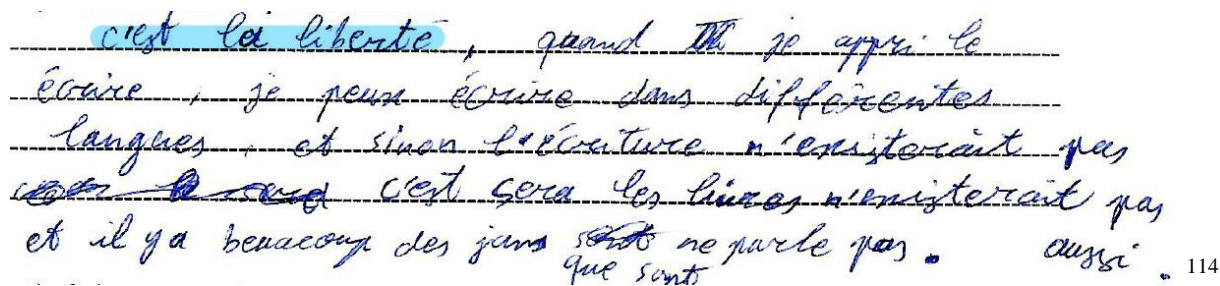 c'est la liberté, quand je appri le
écrire, je peux écrire dans différentes
langues, et sinon l'écriture n'exsisterait pas
c'est sera les livres n'existerait pas
et il ya beaucoup des jans ne parle pas. aussi.
que sont
114